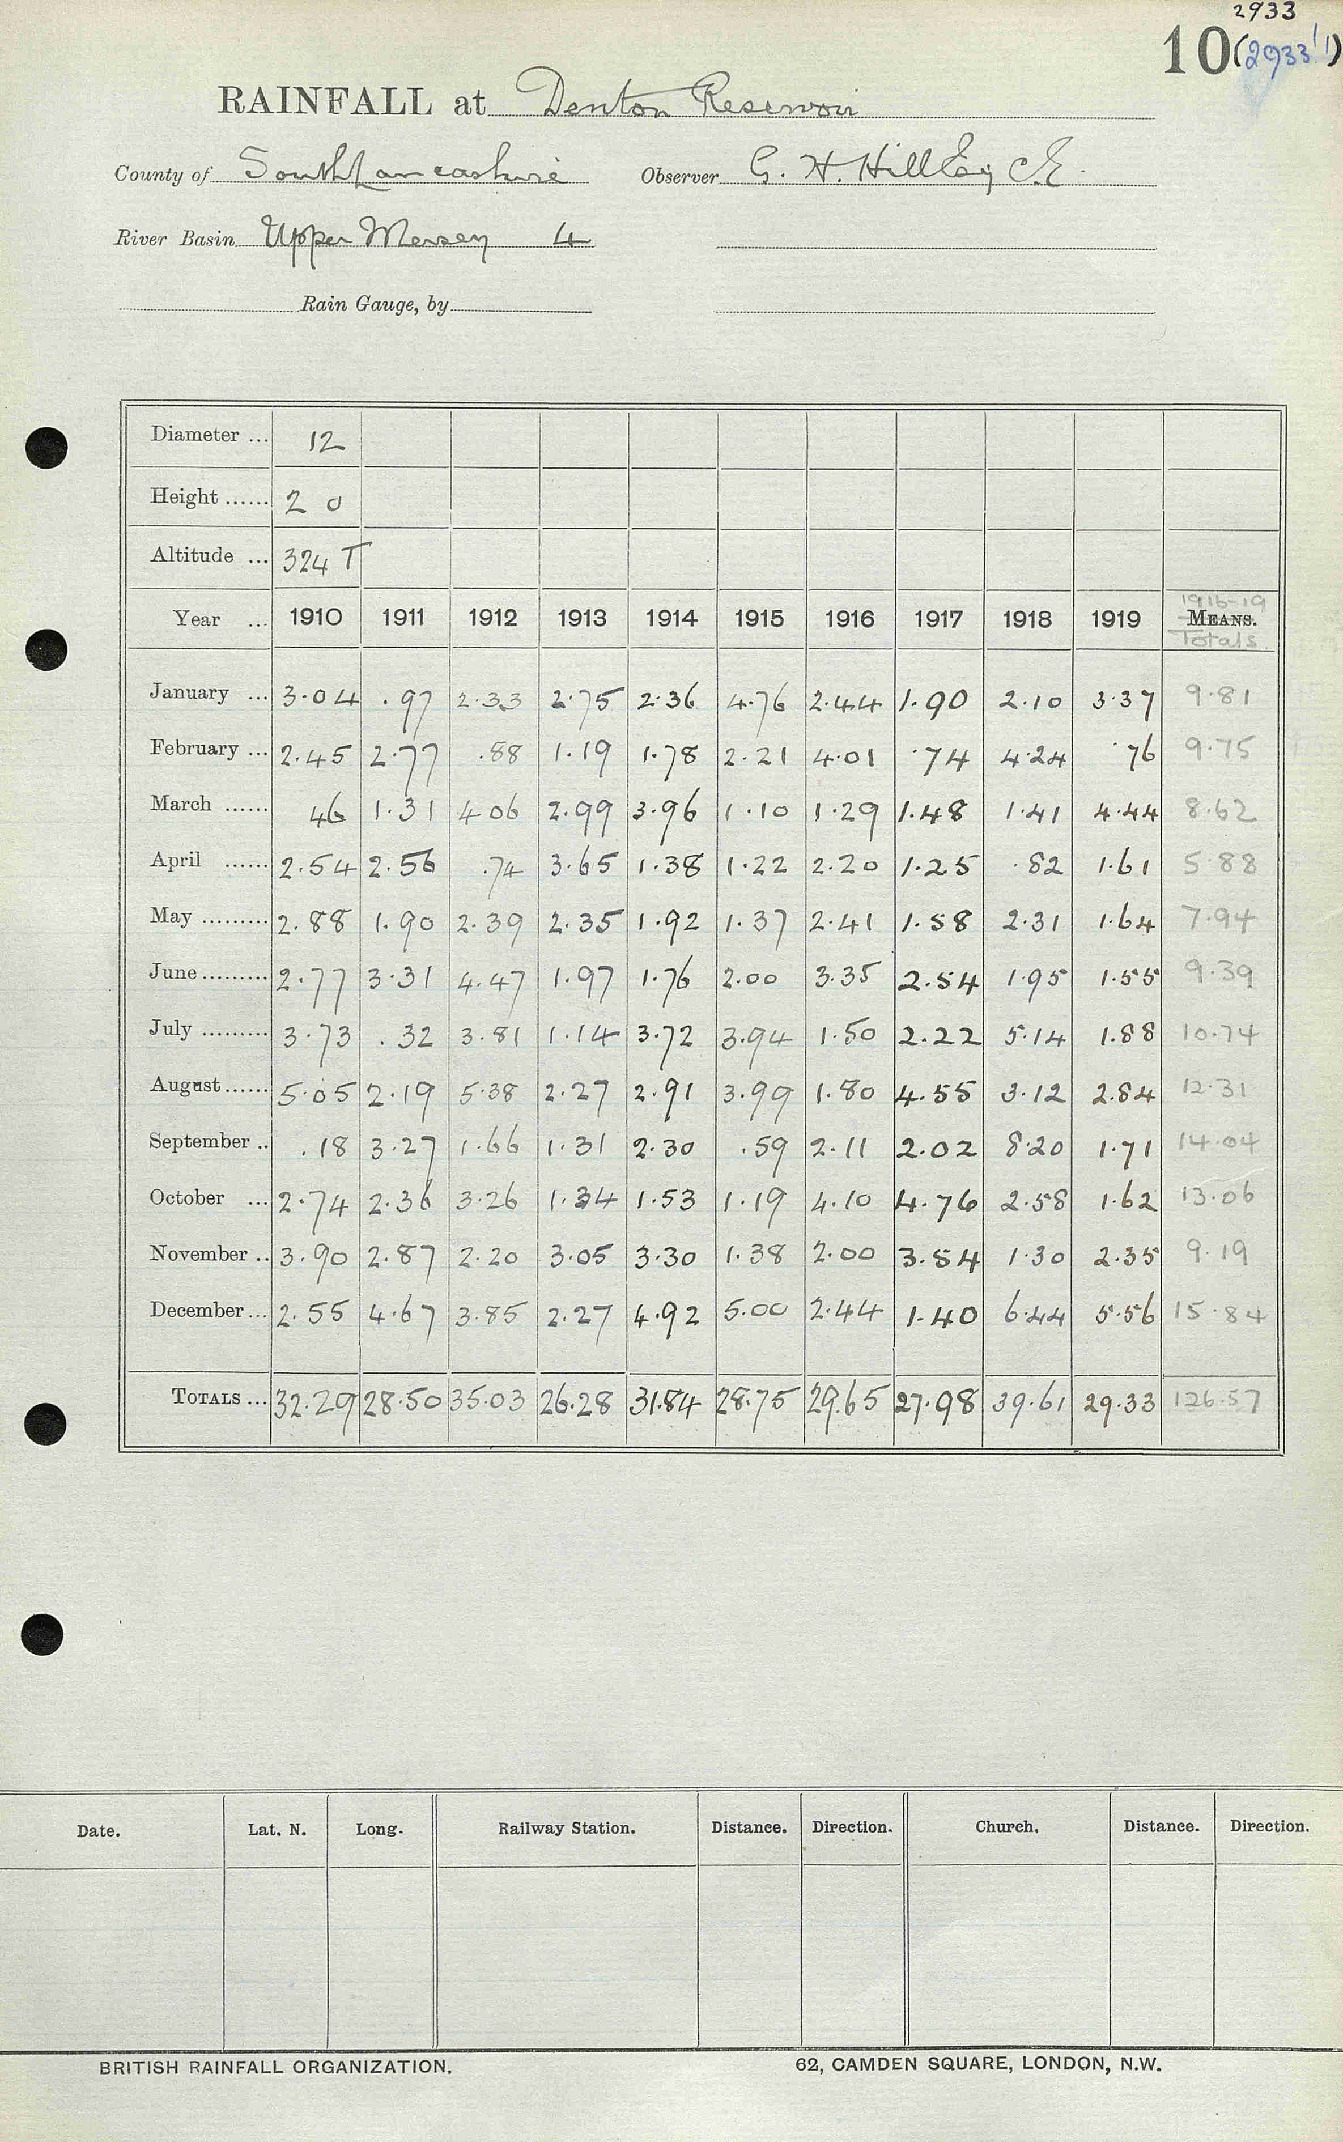 2933
10 (2933/1)
RAINFALL at Denton Reservoir
County of South Lancashire Observer G. H. Hill Esq C.E.
River Basin Upper Mersey 4
Rain Gauge, by
Diameter ... 12
Height ...... 2 0
Altitude ... 324 T
1916-19
Year ... 1910 1911 1912 1913 1914 1915 1916 1917 1918 1919 MEANS.
Totals
January ... 3.04 .97 2.33 2.75 2.36 4.76 2.44 1.90 2.10 3.37 9.81
February ... 2.45 2.77 .88 1.19 1.78 2.21 4.01 .74 4.24 .76 9.75
March ...... 46 1.31 4 06 2.99 3.96 1.10 1.29 1.48 1.41 4.44 8.62
April ...... 2.54 2.56 .74 3.65 1.38 1.22 2.20 1.25 .82 1.61 5.88
May ......... 2.88 1.90 2.39 2.35 1.92 1.37 2.41 1.58 2.31 1.64 7.94
June ......... 2.77 3.31 4.47 1.97 1.76 2.00 3.35 2.54 1.95 1.55 9.39
July ......... 3.73 .32 3.81 1.14 3.72 3.94 1.50 2.22 5.14 1.88 10.74
August ...... 5.05 2.19 5.38 2.27 2.91 3.99 1.80 4.55 3.12 2.84 12.31
September .. .18 3.27 1.66 1.31 2.30 .59 2.11 2.02 8.20 1.71 14.04
October ... 2.74 2.36 3.26 1.34 1.53 1.19 4.10 4.76 2.58 1.62 13.06
November .. 3.90 2.87 2.20 3.05 3.30 1.38 2.00 3.54 1.30 2.35 9.19
December ... 2.55 4.67 3.85 2.27 4.92 5.00 2.44 1.40 6.44 5.56 15.84
TOTALS ... 32.29 28.50 35.03 26.28 31.84 28.75 29.65 27.98 39.61 29.33 126.57
Date. Lat. N. Long. Railway Station. Distance. Direction. Church. Distance. Direction.
BRITISH RAINFALL ORGANIZATION. 62, CAMDEN SQUARE, LONDON, N.W.